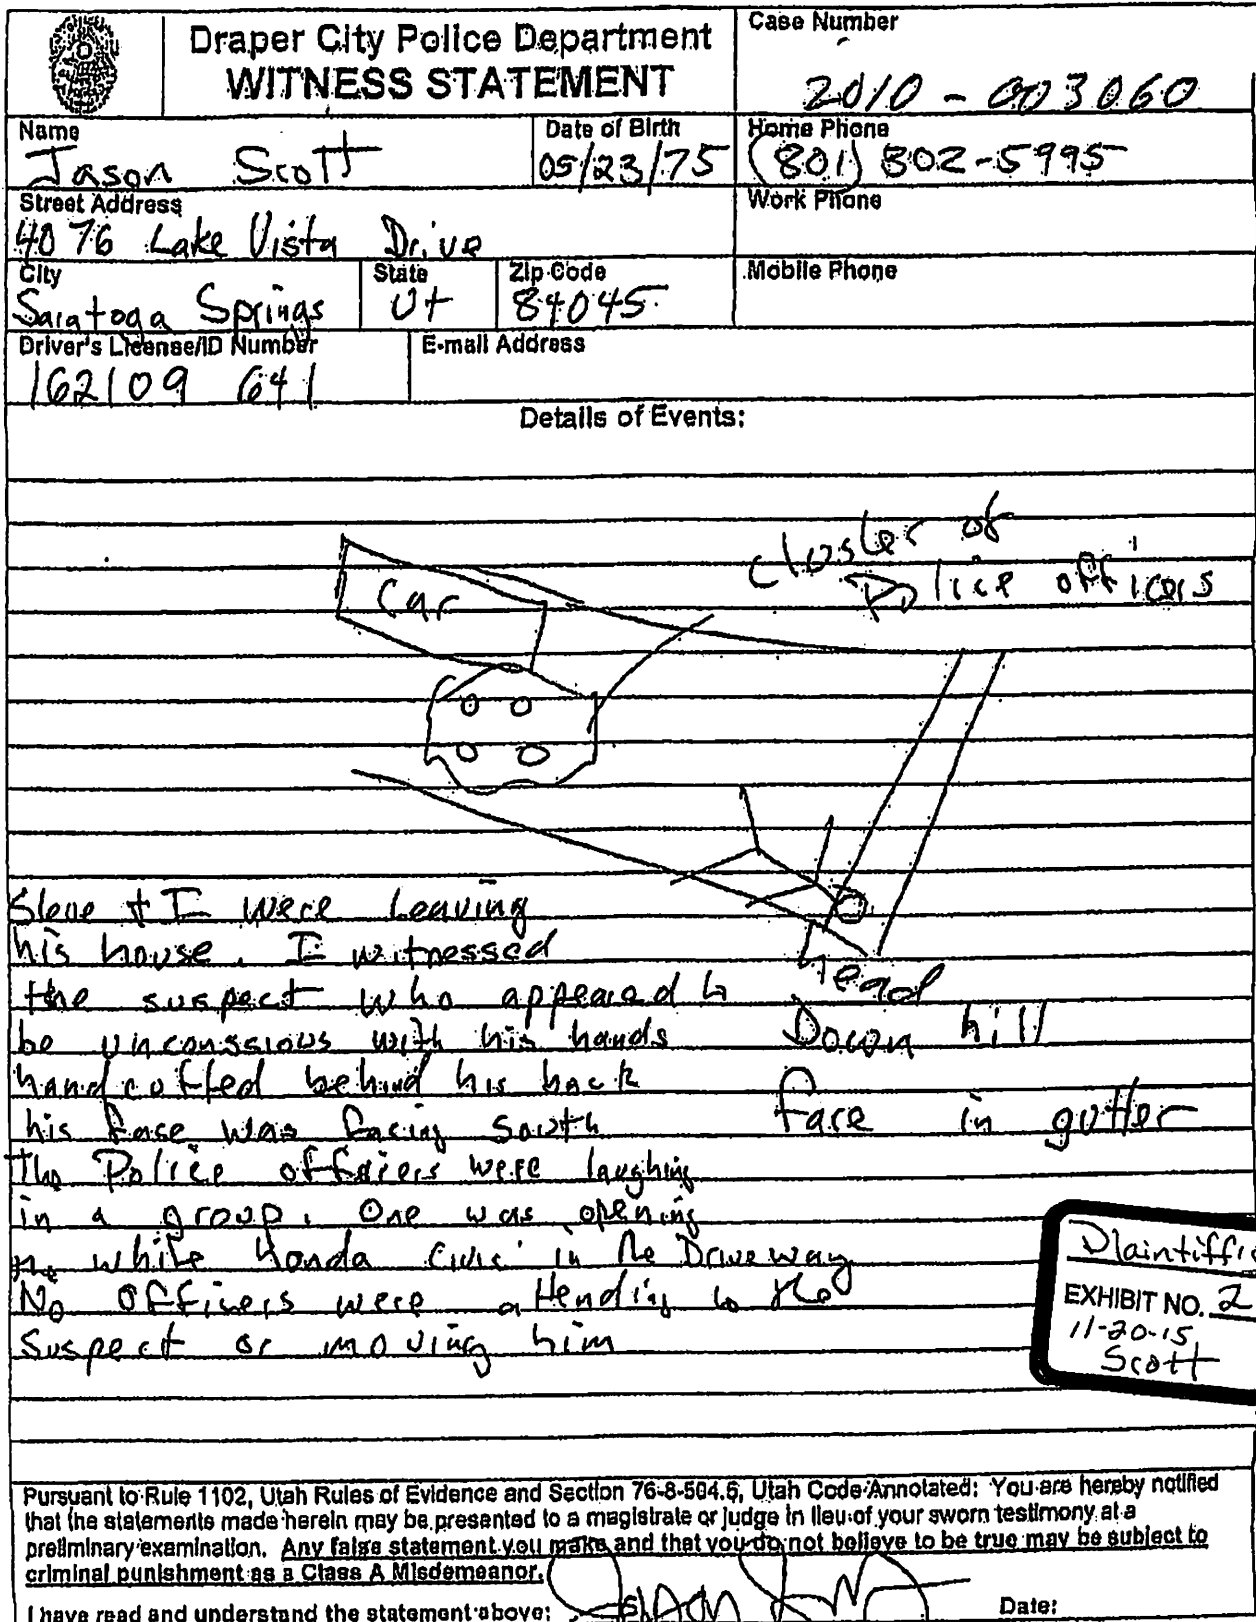 Draper City Police Department
WITNESS STATEMENT
Case Number
2010-003060
Name
Jason Scott
Date of Birth
05/23/75
Home Phone
(801) 802-5995
Street Address
4076 Lake Vista Drive
Work Phone
City
Saratoga Springs
State
Ut
Zip Code
84045
Mobile Phone
Driver's License/ID Number
162109 641
E-mail Address
Details of Events:
cluster of
Police officers
Car
Steve & I were Leaving
his house. I witnessed
the suspect who appeared to
be unconssious with his hands
handcuffed behind his back
his face was facing South
The Police officiers were laughing
in a group. One was opening
the white honda civic in the Driveway
No Officers were attending to the
suspect or moving him
head
Down hill
face in gutter
Plaintiff's
EXHIBIT NO. 2
11-20-15
Scott
Pursuant to Rule 1102, Utah Rules of Evidence and Section 76-8-504.5, Utah Code Annotated: You are hereby notified
that the statements made herein may be presented to a magistrate or judge in lieu of your sworn testimony at a
preliminary examination. Any false statement you make and that you do not believe to be true may be subject to
criminal punishment as a Class A Misdemeanor.
I have read and understand the statement above:
Date: